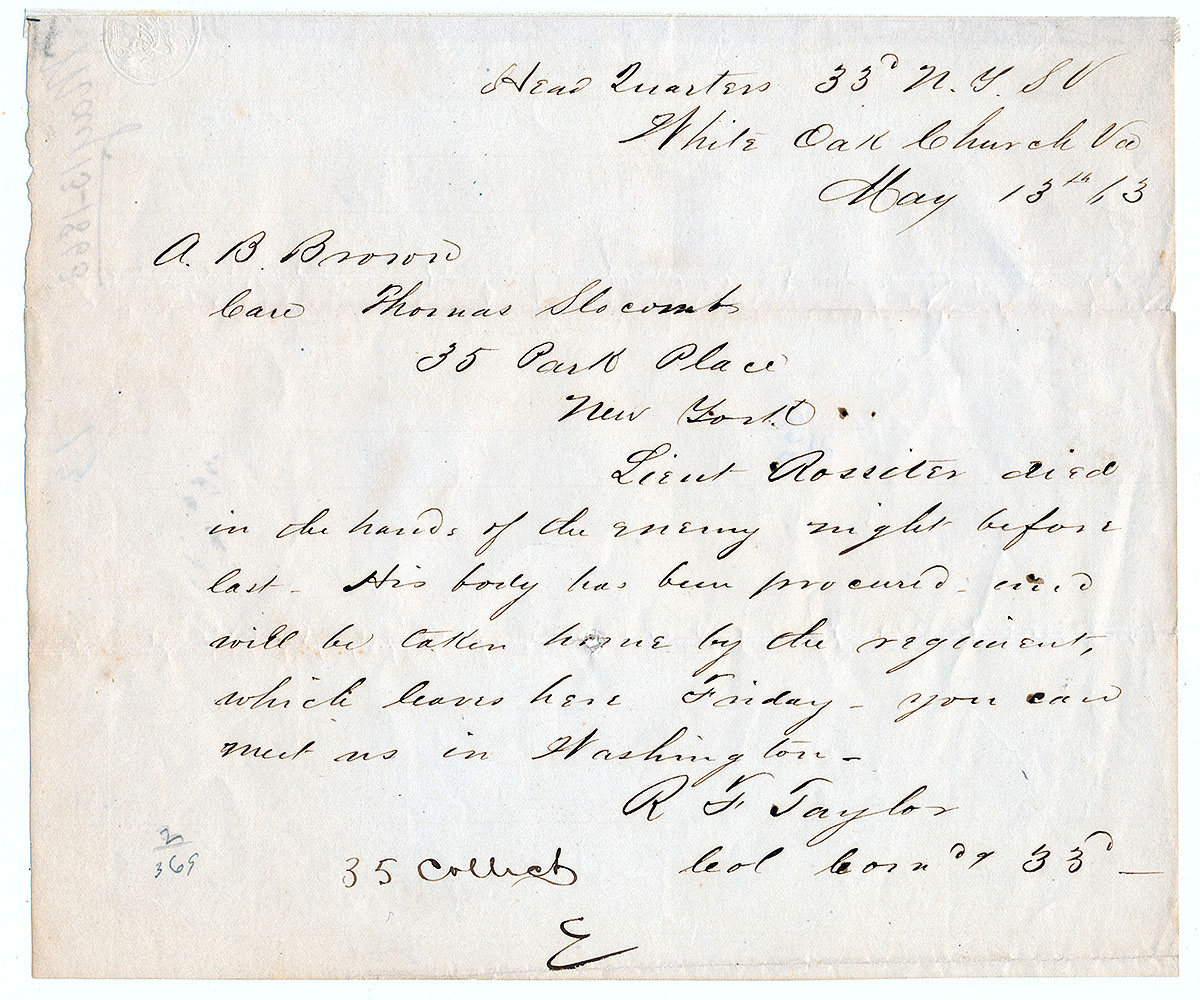 Head Quarters 33d N. Y. S V
White Oak Church Va
May 13th /63
A. B. Brown
Care Thomas Slocomb
35 Park Place
New York
Lieut Rossiter died
in the hands of the enemy night before
last - His body has been procured - and
will be taken home by the regiment,
which leaves here Friday - you can
meet us in Washington -
R F Taylor
35 Collect Col Com'd'g 33d -
2
369